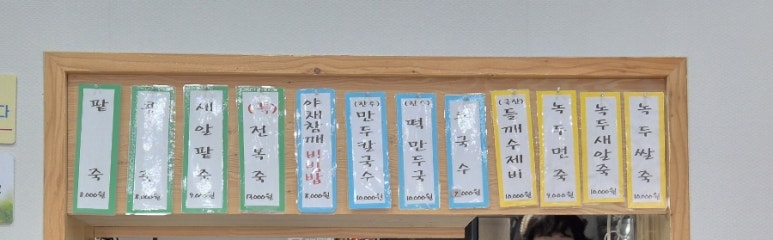 팥죽 8,000원
죽 8,000원
새알팥죽 9,000원
전복죽
야채참깨비빔밥 8,000원
만두칼국수 10,000원
떡만두국 10,000원
국수
들깨수제비 10,000원
녹두면죽 9,000원
녹두새알죽 10,000원
녹두쌀죽 10,000원
다